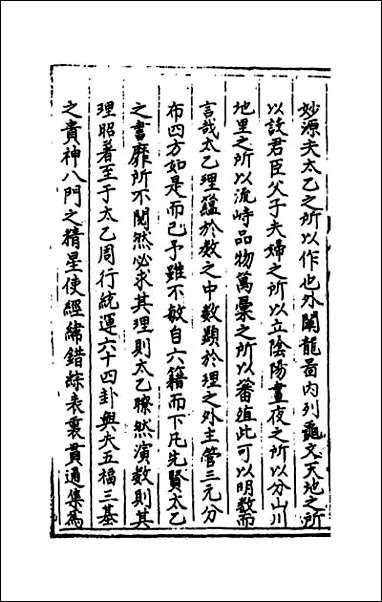 妙源夫太乙之所以作也外闡龍啚内列龜文天地之所
以設君臣父子夫婦之所以立陰陽晝夜之所以分山川
地里之所以流峙品物萬彙之所以蕃殖此可以明数而
言哉太乙理蘊於数之中数顯於理之外主管三元分
布四方如是而已予雖不敏自六籍而下凡先賢太乙
之書靡所不閱然必求其理則太乙瞭然演数則其
理昭著至于太乙周行統運六十四卦與夫五福三基
之貴神八門之精星使經緯錯綜表裏貫通集為